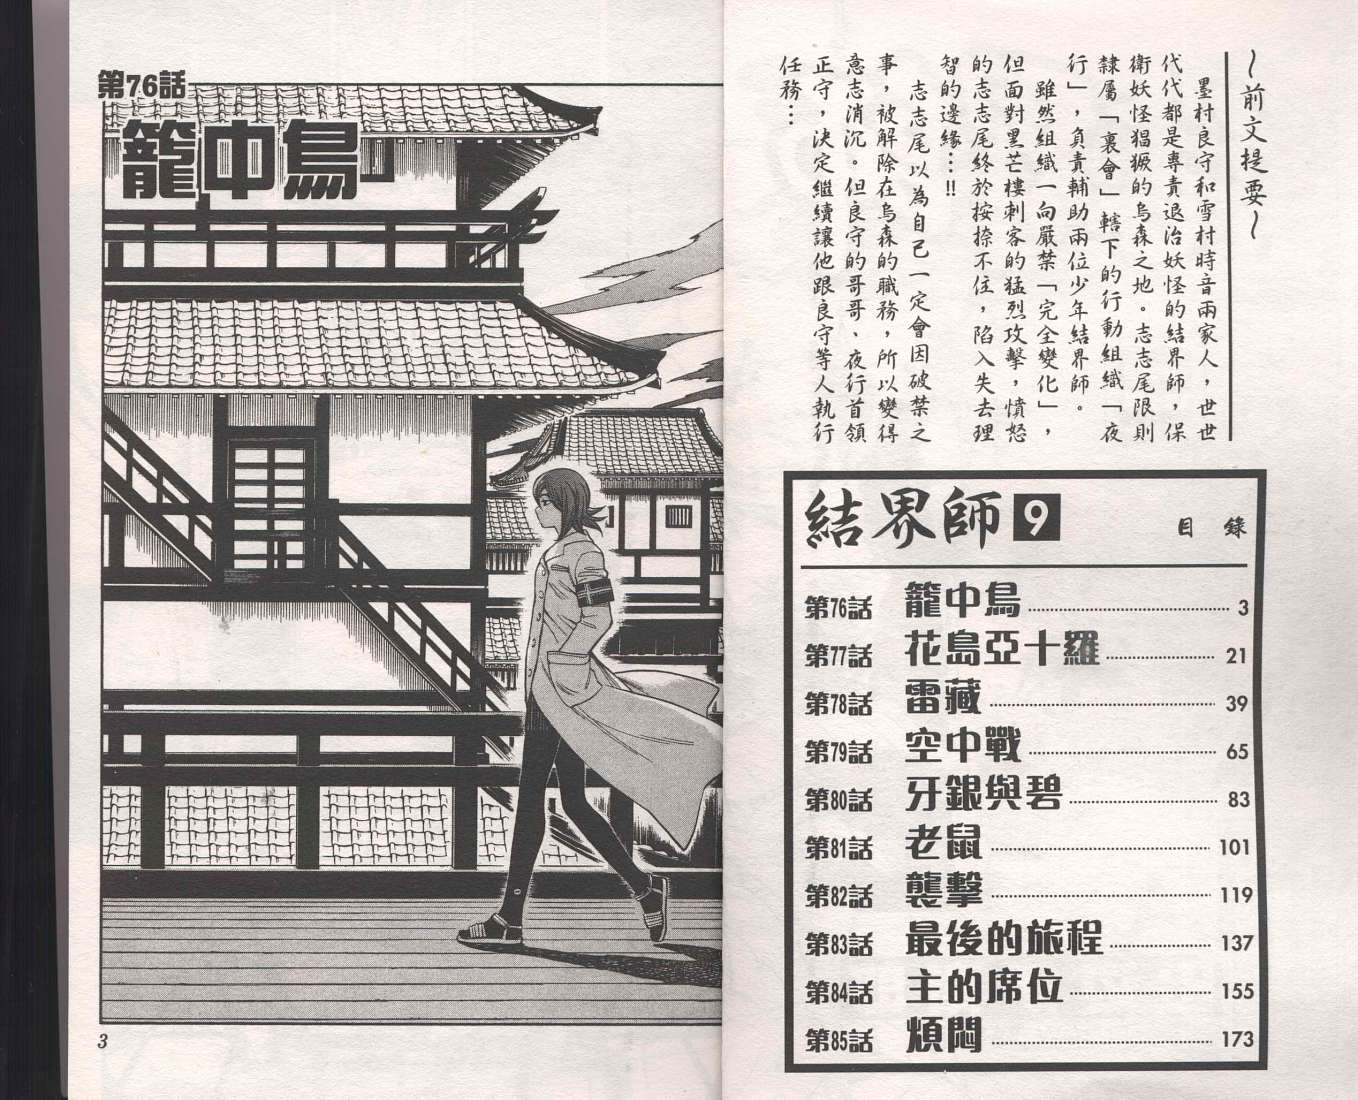 ~前文提要~
墨村良守和雪村時音兩家人，世世
代代都是專責退治妖怪的結界師，保
衛妖怪猖獗的烏森之地。志志尾限則
隸屬「裏會」轄下的行動組織「夜
行」，負責輔助兩位少年結界師。
雖然組織一向嚴禁「完全變化」，
但面對黑芒樓刺客的猛烈攻擊，憤怒
的志志尾終於按捺不住，陷入失去理
智的邊緣…!!
志志尾以為自己一定會因破禁之
事，被解除在烏森的職務，所以變得
意志消沉。但良守的哥哥、夜行首領
正守，決定繼續讓他跟良守等人執行
任務…
結界師 9 目錄
第76話 籠中鳥 3
第77話 花島亞十羅 21
第78話 雷藏 39
第79話 空中戰 65
第80話 牙銀與碧 83
第81話 老鼠 101
第82話 襲擊 119
第83話 最後的旅程 137
第84話 主的席位 155
第85話 煩悶 173
第76話
籠中鳥
3